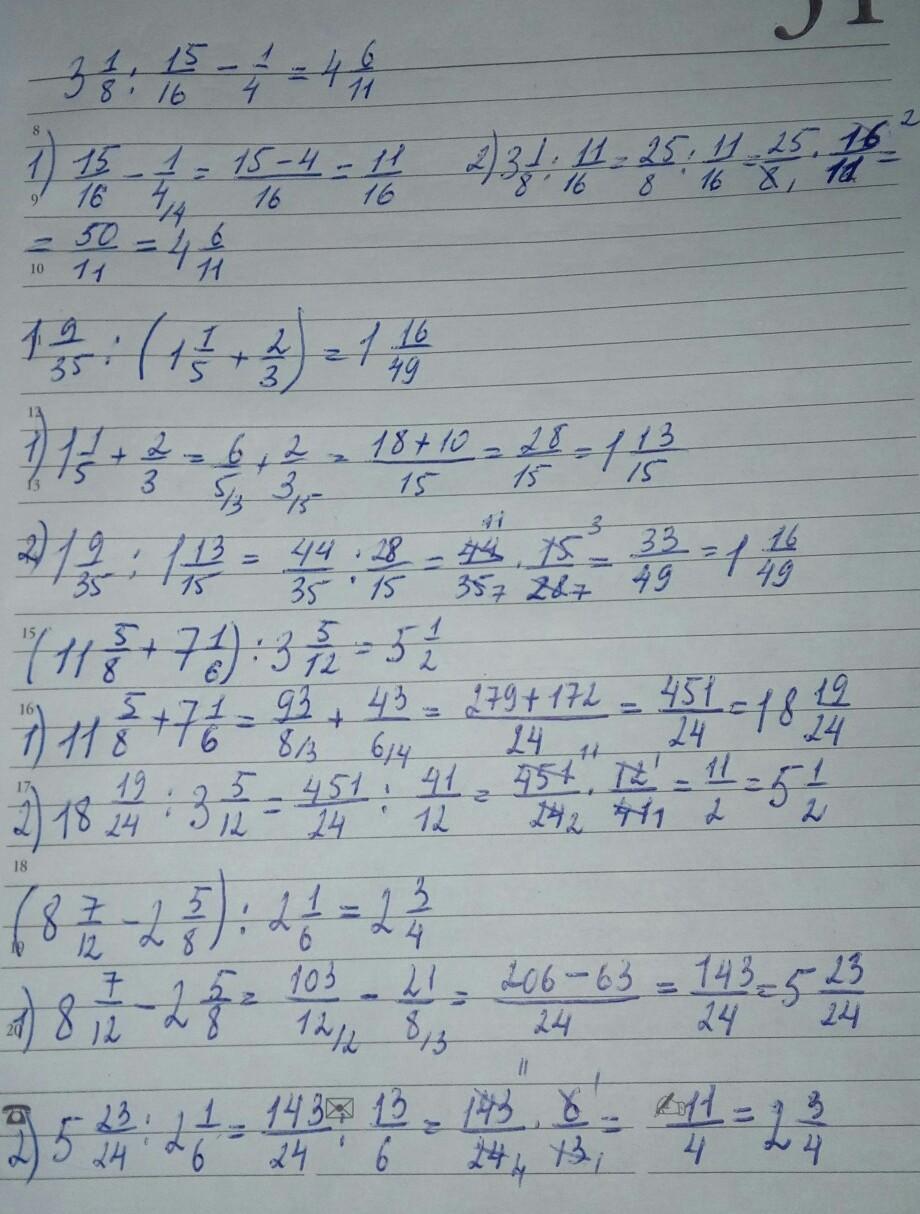 3 1/8 : 15/16 - 1/4 = 4 6/11
8
1) 15/16 - 1/4 /4 = (15-4)/16 = 11/16 2) 3 1/8 : 11/16 = 25/8 : 11/16 = 25/8 1 · 16/11 2 =
9
= 50/11 = 4 6/11
10
1 9/35 : (1 1/5 + 2/3) = 1 16/49
12
1) 1 1/5 + 2/3 = 6/5 /3 + 2/3 /5 = (18+10)/15 = 28/15 = 1 13/15
13
2) 1 9/35 : 1 13/15 = 44/35 : 28/15 = 44 11/35 7 · 15 3/28 7 = 33/49 = 1 16/49
15
(11 5/8 + 7 1/6) : 3 5/12 = 5 1/2
16
1) 11 5/8 + 7 1/6 = 93/8 /3 + 43/6 /4 = (279+172)/24 = 451/24 = 18 19/24
17
2) 18 19/24 : 3 5/12 = 451/24 : 41/12 = 451 11/24 2 · 12 1/41 1 = 11/2 = 5 1/2
18
(8 7/12 - 2 5/8) : 2 1/6 = 2 3/4
1) 8 7/12 - 2 5/8 = 103/12 /2 - 21/8 /3 = (206-63)/24 = 143/24 = 5 23/24
20
2) 5 23/24 : 2 1/6 = 143/24 : 13/6 = 143 11/24 4 · 6 1/13 1 = 11/4 = 2 3/4